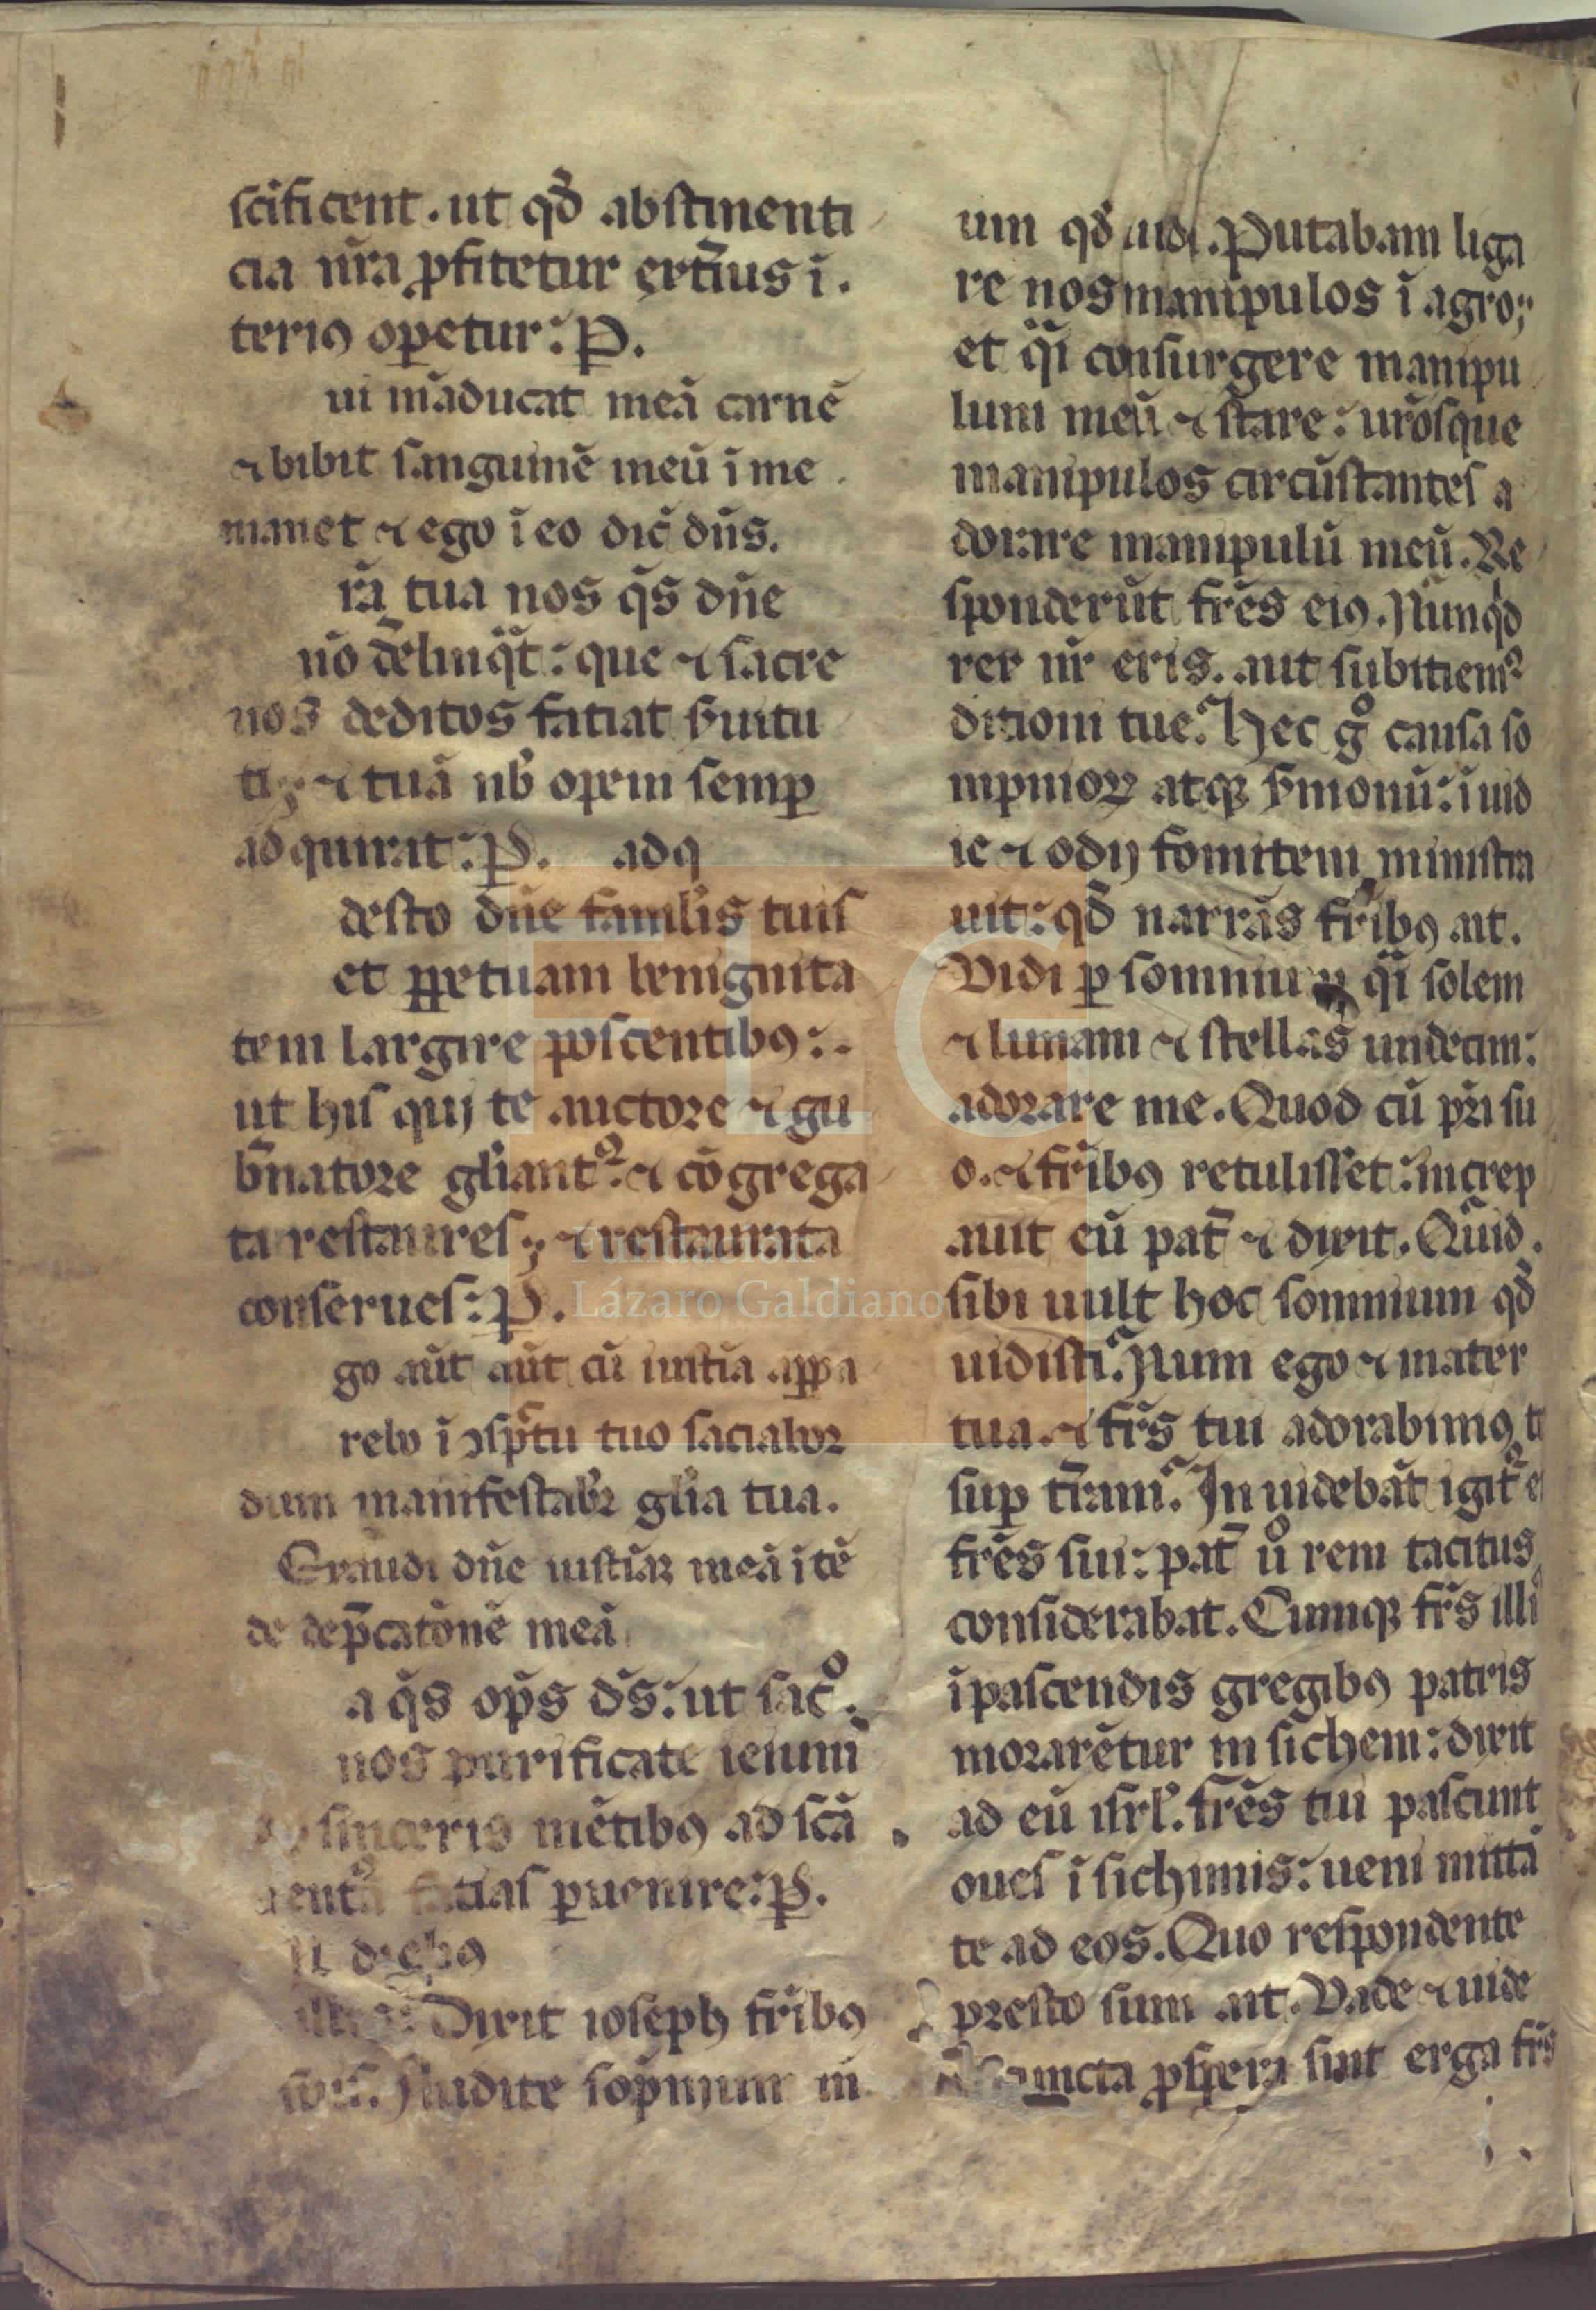 scificent. ut qd̄ abstinenti
cia nr̄a ꝓfitetur ęrtīus ī.
teriꝯ oꝑetur: P.
ui māducat meā carnē
⁊ bibit sanguinē meū ī me
manet ⁊ ego ī eo dic̄ dn̄s.
rā tua nos q̄s dn̄e
nō dēlinqͣt: que ⁊ sacre
nos deditos fatiat s̄uitu
ti, ⁊ tuā nb̓ opem semꝑ
adquirat: P. adq
desto dn̄e famul̓is tuis
et ꝑpetuam benignita
tem largire poscentibꝯ:
ut his quȷ te auctore ⁊ gu
b̄natore gl̓iant᷑: ⁊ cōgrega
ta restaures; ⁊ restaurata
conserues: P.
go aūt aūt cū iustīa appa
rebo ī ꝯspc̄tu tuo saciabor
dum manifestabr̄ gl̓ia tua.
Exaudi dn̄e iustīaꝫ meā ītē
de dep̄catōnē meā
a q̄s op̄s ds̄: ut sac̄ͦ.
nos purificate ieiuni
sinceris mētibꝯ ad scā
uentͣ fatias ꝑuenire: P.
Dixit ioseph fr̄ibꝯ
suis. Audite sop̄nium m
um qd̄ uidi. Putabam liga
re nos manipulos ī agro;
et qͣi consurgere manipu
lum meū ⁊ stare: ur̄osque
manipulos circūstantes a
dorare manipulū meū. Re
sponderūt fr̄es eiꝯ. Nunqͥd
rex nr̄ eris. aut subitiem᷑
ditioni tue? Hec gͦ causa so
mpnioꝝ atqꝫ s̄monū: ī uid
ie ⁊ odij fomitem ministra
uit: qd̄ narrās fr̄ibꝯ ait.
Vidi ꝑ somnium qͣi solem
⁊ lunam ⁊ stellas undecim:
adorare me. Quod cū pr̄i su
o. ⁊ fr̄ibꝯ retulisset: increp
auit eū pat̄ ⁊ dixit. Quid.
sibi uult hoc somnium qd̄
uidisti? Num ego ⁊ mater
tua. ⁊ fr̄s tui adorabimꝯ te
suꝑ tr̄am? In uidebāt igit᷑ ei
fr̄es sui: pat̄ uͦ rem tacitus
considerabat. Cumqꝫ fr̄s illi
ī pascendis gregibꝯ patris
morarētur in sichem: dixit
ad eū isrl̓. fr̄es tui pascunt
oues ī sichimis: ueni mittā
te ad eos. Quo respondente
presto sum ait. Vade ⁊ uide
cuncta ꝓspera sint erga fr̄s
FLG
Fundación
Lázaro Galdiano